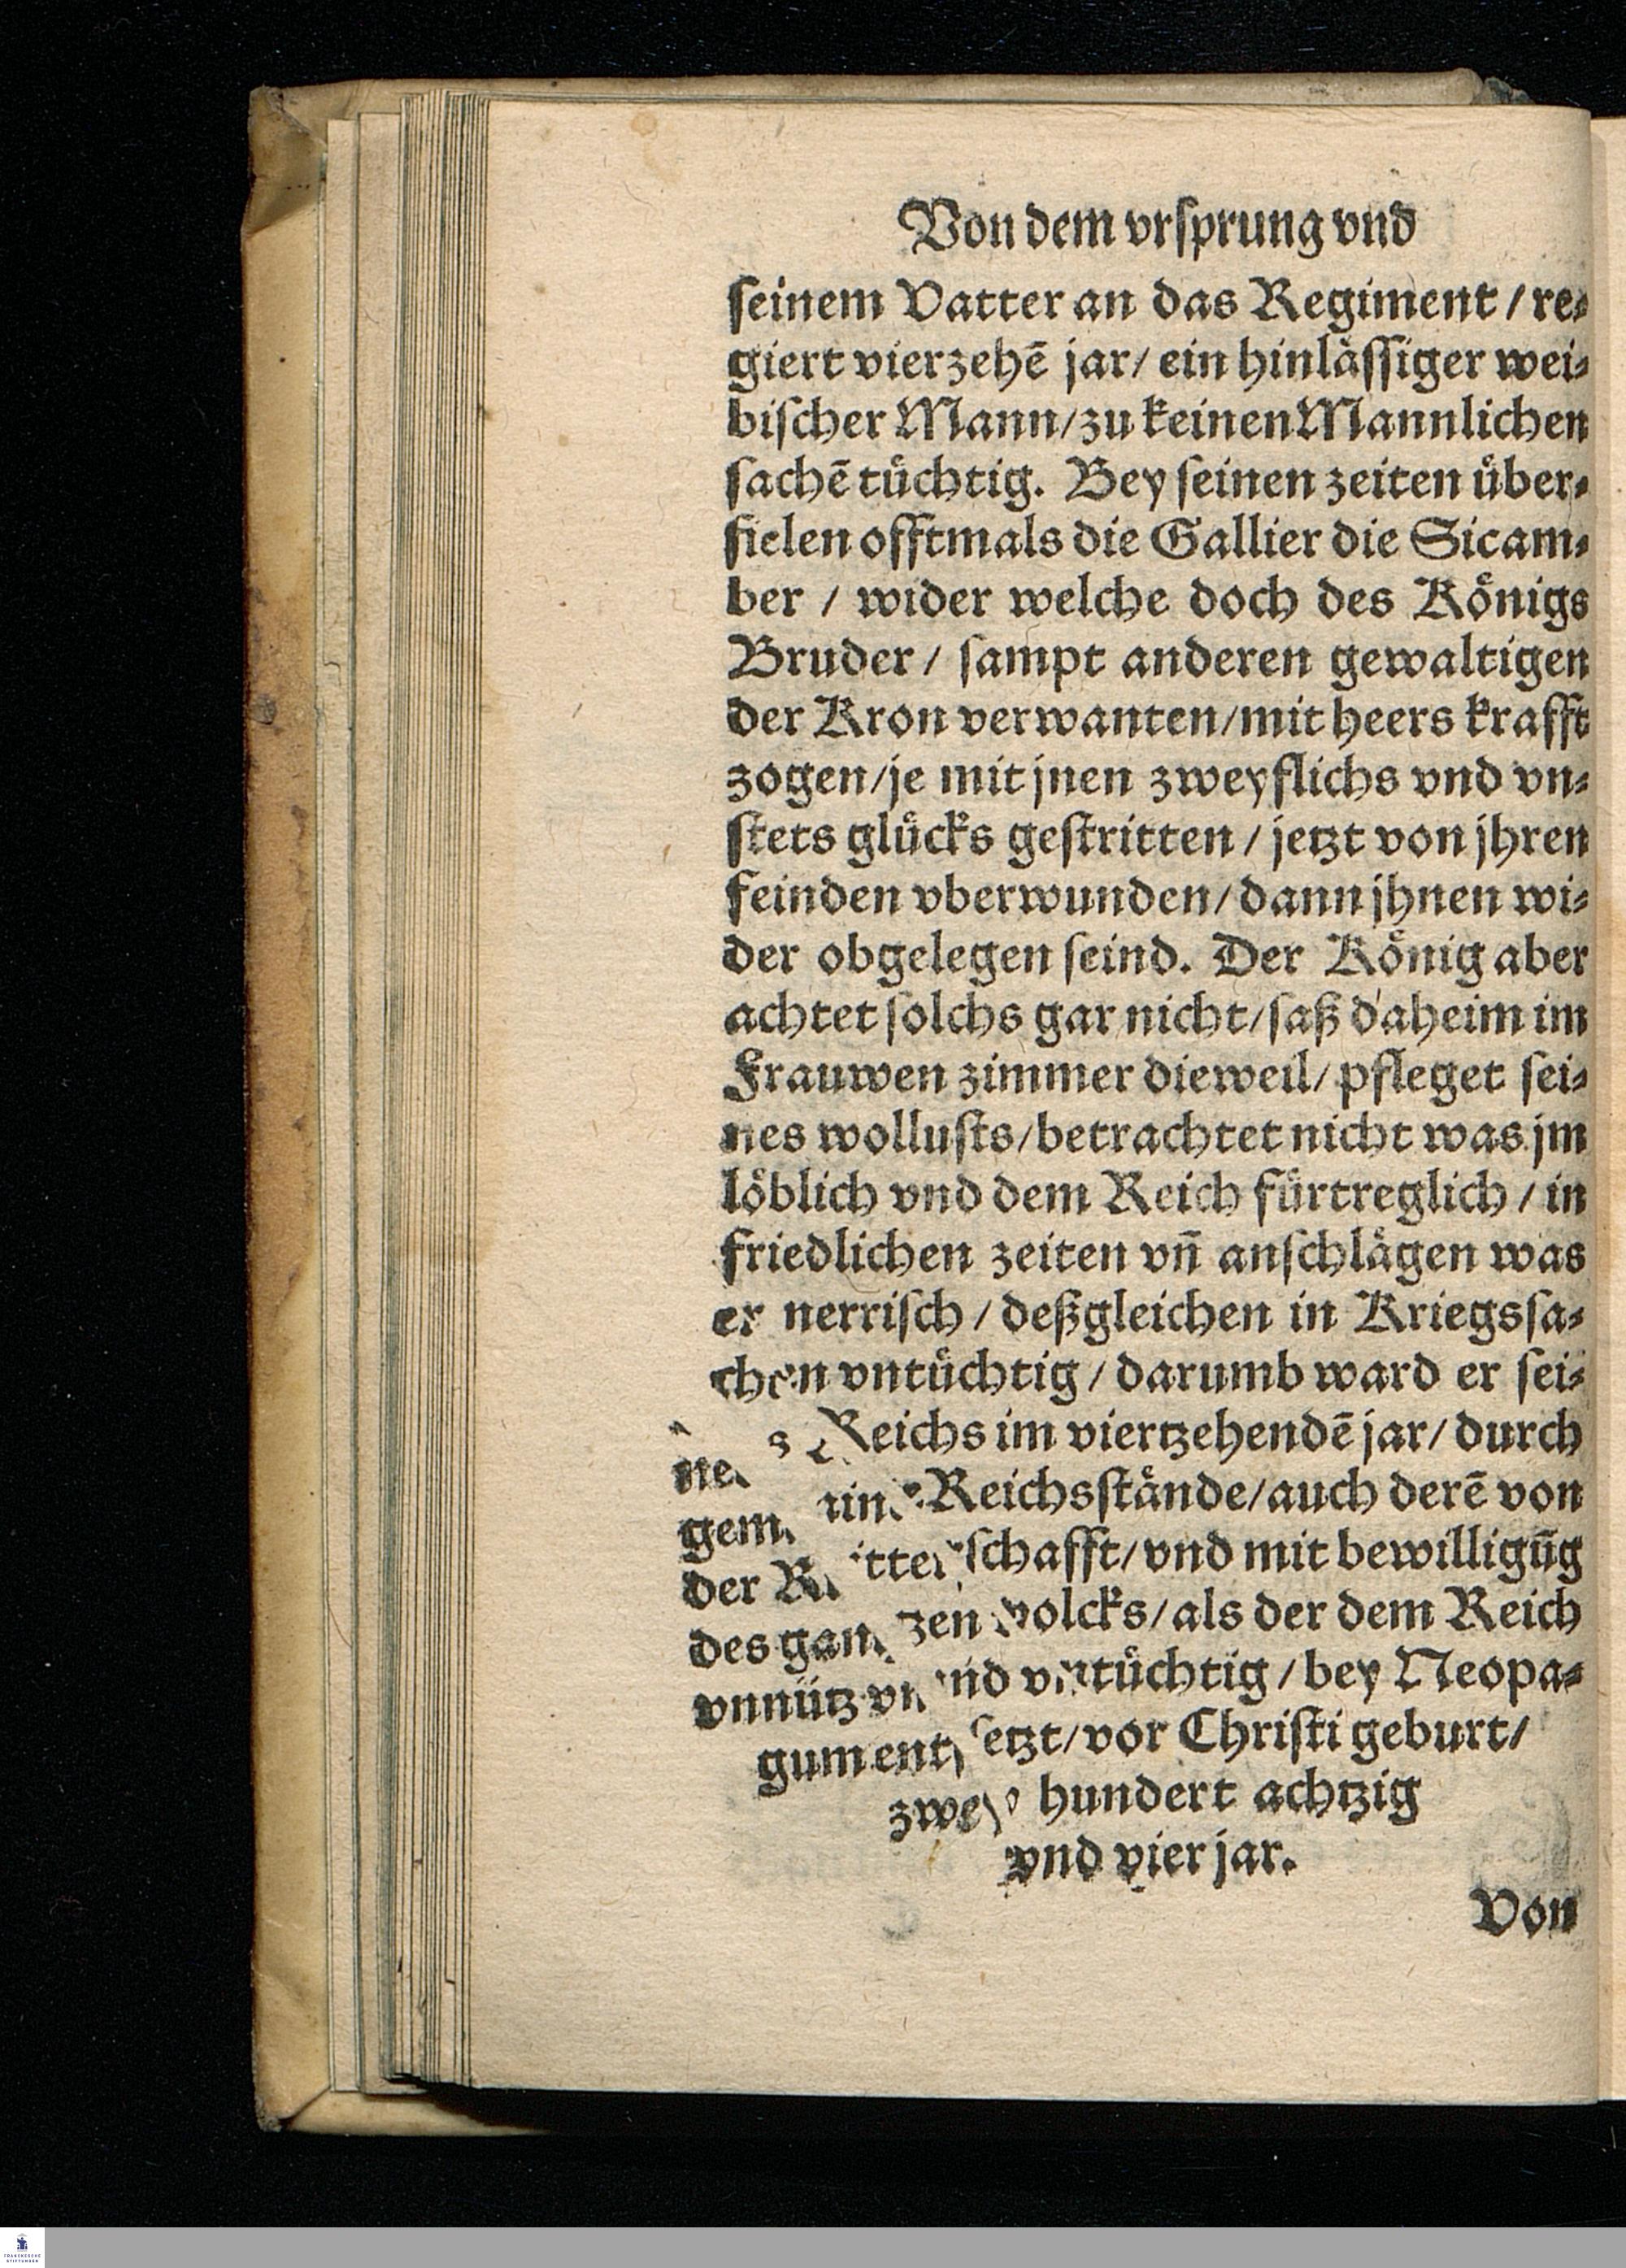 Von dem vrſprung vnd
ſeinem Vatter an das Regiment / re⸗
giert vierzehē jar/ ein hinlaͤſſiger wei⸗
biſcher Mann/zu keinen Mannlichen
ſachē tuͤchtig. Bey ſeinen zeiten uͤber⸗
fielen offtmals die Gallier die Sicam⸗
ber / wider welche doch des Koͤnigs
Bruder/ ſampt anderen gewaltigen
der Kron verwanten/mit heers krafft
zogen/je mit jnen zweyflichs vnd vn⸗
ſtets gluͤcks geſtritten / jetzt von jhren
feinden vberwunden/ dann jhnen wi⸗
der obgelegen ſeind. Der Koͤnig aber
achtet ſolchs gar nicht/ſaß daheim im
Frauwen zimmer dieweil/ pfleget ſei⸗
nes wolluſts/betrachtet nicht was jm
loͤblich vnd dem Reich fuͤrtreglich / in
friedlichen zeiten vn̄ anſchlaͤgen was
er nerriſch / deßgleichen in Kriegsſa⸗
chen vntuͤchtig / darumb ward er ſei⸗
nes Reichs im viertzehendē jar/ durch
gemeine Reichsſtaͤnde/auch derē von
der Ritterſchafft/ vnd mit bewilligūg
des gantzen volcks/als der dem Reich
vnnuͤtz vnd vntuͤchtig / bey Neopa⸗
gum entſetzt/vor Chriſti geburt/
zwey hundert achtzig
vnd vier jar.
Von
FRANCKESCHE
STIFTUNGEN